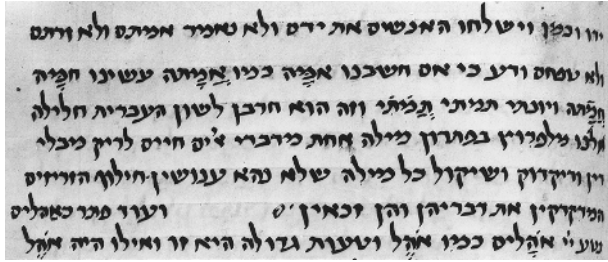 ידו וכמן וישלחו האנשים את ידם ולא נאמר אמיתם ולא זרתם
ולא עמתם ודע כי אם חשבנו אִמָּה כמו אֲמִיתה עשינו חמָּה
חֲמָתה ויונתי תמיתי תַמָּתִי וזה הוא חרבן לשון העברית חלילה
אלנו מלפרוץ בפתרון מילה אחת מדברי א׳ים חיים לריק מבלי
דין ודיקדוק ושיקול כל מילה שלא נהא ענושין חילוף הזריזים
המדקדקין את דבריהן והן זכאין ועוד פתר כאהלים
נטע י׳י אֹהָלים כמו אֹהֶל וטעות גדולה היא זו ואילו היה אֹהֶל